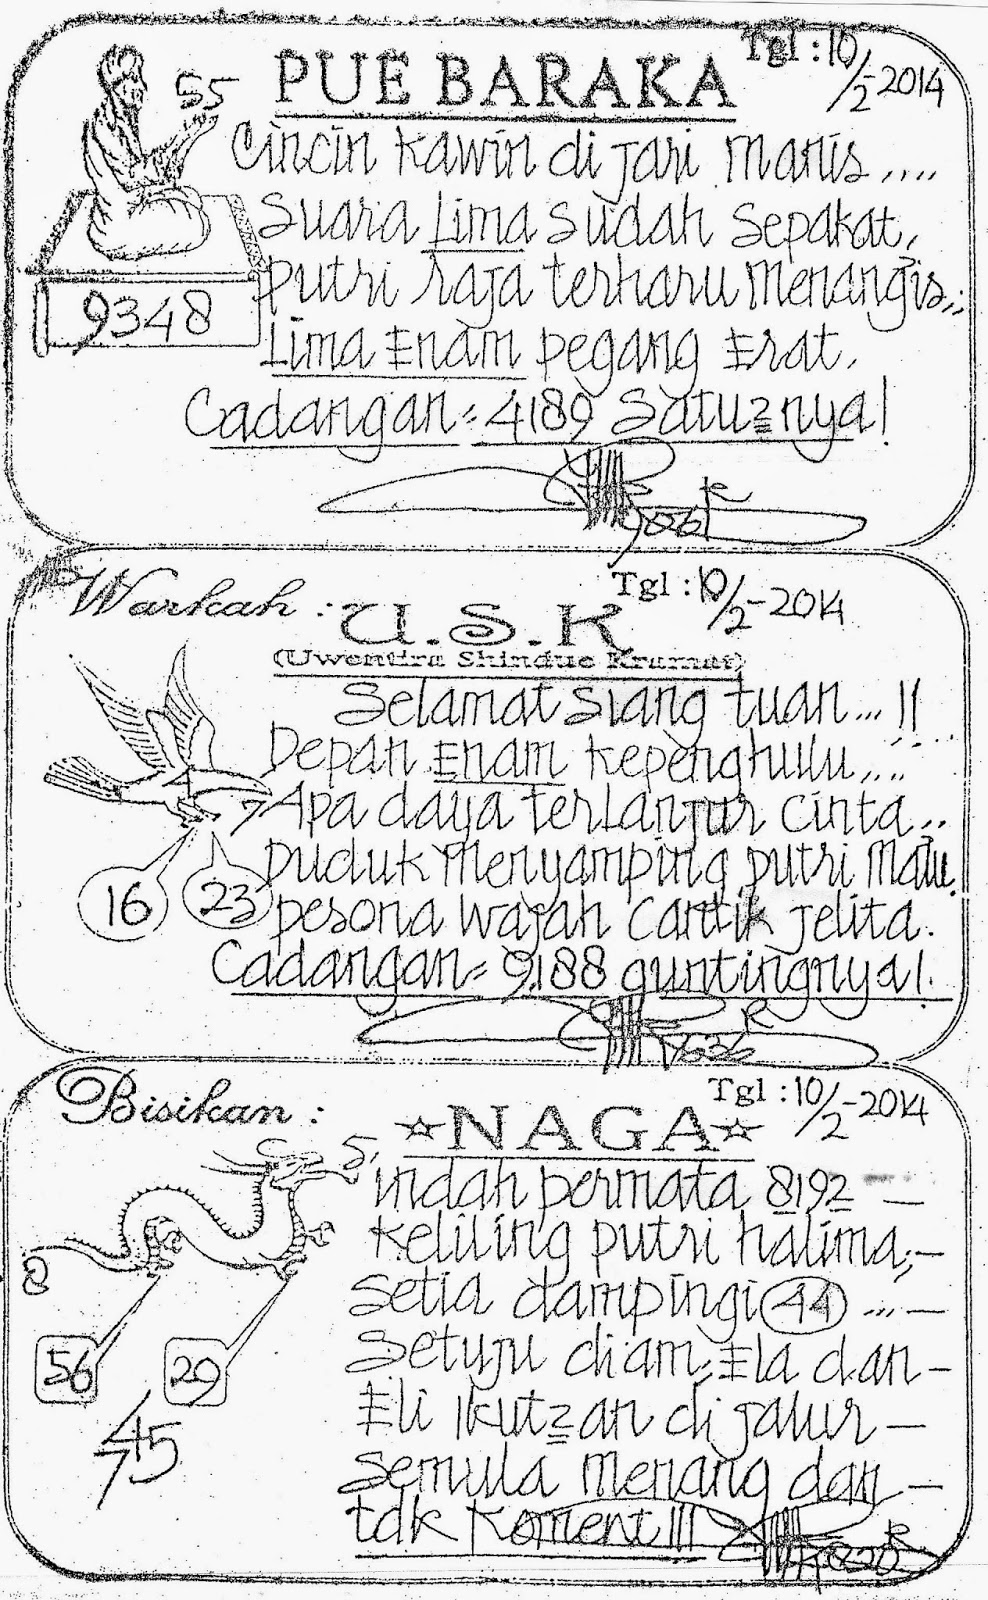 PUE BARAKA
Tgl : 10/2-2014
55
Cincin kawin di jari manis ....
Suara Lima sudah sepakat,
putri raja terharu menangis,..
Lima Enam pegang Erat.
9348
Cadangan = 4189 Satu2nya!
R
Warkah : U.S.K
Tgl : 10/2-2014
(Uwentira Shindue Kramat)
Selamat siang tuan... !!
Depan Enam kepenghulu....
Apa daya terlanjur cinta...
4
7
16 23
Duduk menyamping putri malu.
pesona wajah cantik jelita.
Cadangan = 9188 guntingnya!
R
Bisikan : ☆NAGA☆
Tgl : 10/2-2014
5
8
Indah permata 8192 —
Keliling putri halima,—
Setia dampingi 44 ... —
56 29
Setuju diam, Ela dan —
Eli Ikut2an di jalur —
45
7
Semula menang dan —
tdk Koment!!!
R